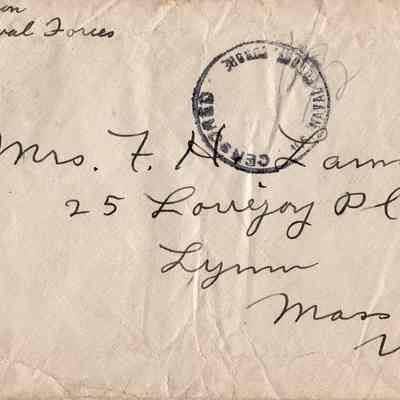 on
val Forces
CENSORED
U.S. NAVAL
Mrs. F. H. Lam
25 Lovejoy Pl
Lynn
Mass
U